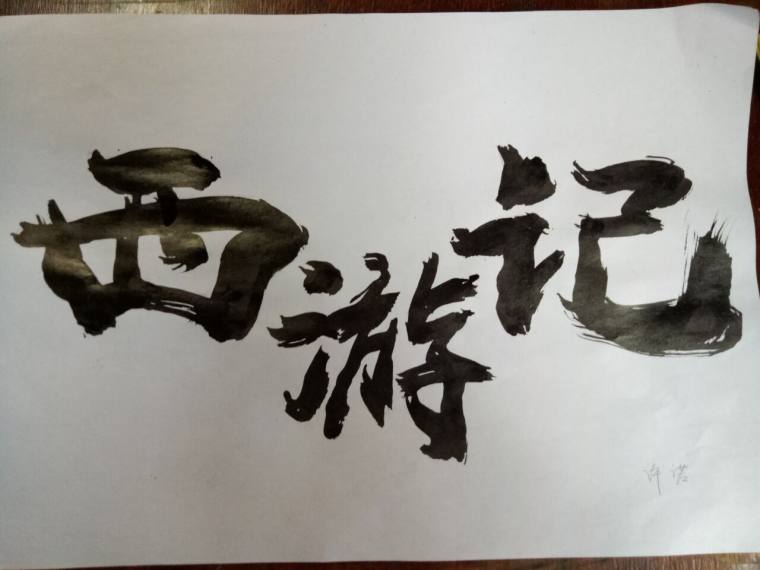 西游记
许诺